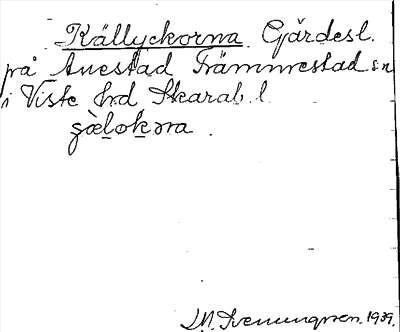 Källyckorna Gärdesl.
på Anestad Främmestad sn
i Viste hd Skarab. l.
gæ̀lok̲əra.
1939.